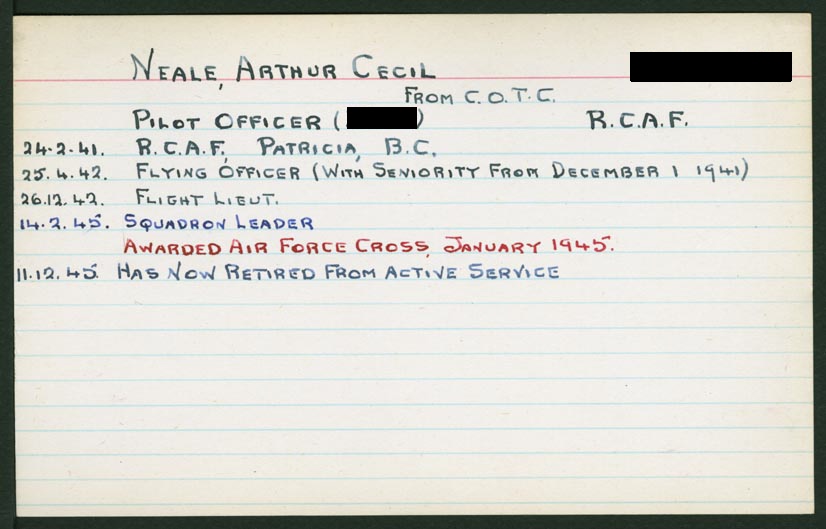 NEALE, ARTHUR CECIL
FROM C.O.T.C.
PILOT OFFICER ( ) R.C.A.F.
24.2.41. R.C.A.F. PATRICIA, B.C.
25.4.42. FLYING OFFICER (WITH SENIORITY FROM DECEMBER 1 1941)
26.12.42. FLIGHT LIEUT.
14.2.45. SQUADRON LEADER
AWARDED AIR FORCE CROSS, JANUARY 1945.
11.12.45. HAS NOW RETIRED FROM ACTIVE SERVICE